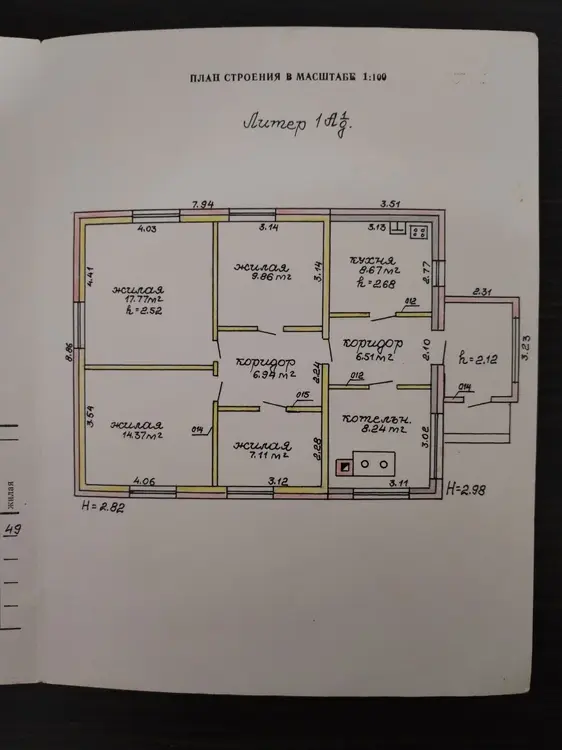 ПЛАН СТРОЕНИЯ В МАСШТАБЕ 1:100
Литер 1А 1/g.
7.94
3.51
4.03
3.14
3.13
4.41
жилая
17.77 м²
h=2.52
жилая
9.86 м²
3.14
кухня
8.67 м²
h=2.68
2.77
012
2.31
8.86
коридор
6.94 м²
2.24
коридор
6.51 м²
2.10
h=2.12
3.23
012
014
015
3.54
жилая
14.37 м²
014
жилая
7.11 м²
2.28
котельн.
8.24 м²
3.02
4.06
3.12
3.11
H=2.98
H=2.82
жилая
49